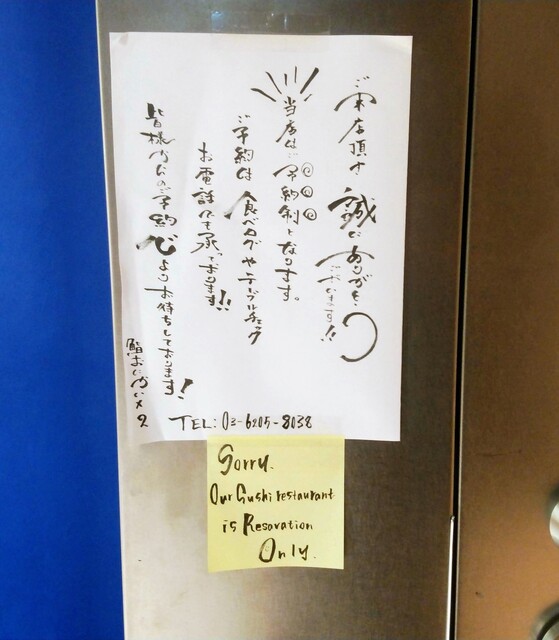 ご来店頂き誠にありがとう
ございます!!
当店はご予約制となります。
ご予約は食べログやテーブルチェック
お電話にても承っております!!
皆様からのご予約心よりお待ちしております!
鮨おにかい×2
TEL:03-6205-8038
Sorry.
Our Sushi restaurant
is Resavation
Only.